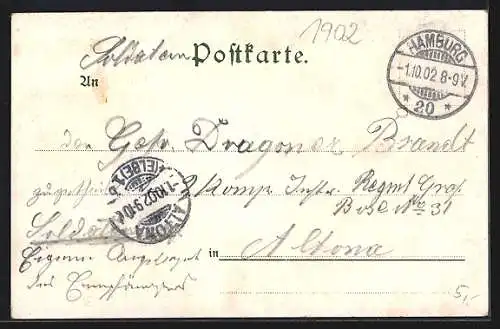 1902
Soldaten Postkarte.
An
HAMBURG
-1.10.02 8-9V.
* 20 *
den Gefr. Dragoner Brandt
zugetheilt 2. Komp. Inftr. Regmt Graf
Bose No 31
Soldaten
in Altona
Eigene Angelegenheit
des Empfängers
ALTONA
(ELBE)
-1.10.02 9-10
5,-